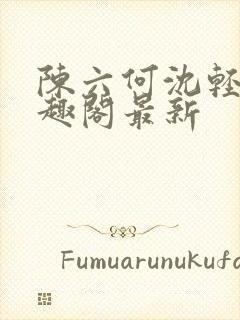 陳六何沈輕
趣閣最新
Fumuarunukufa